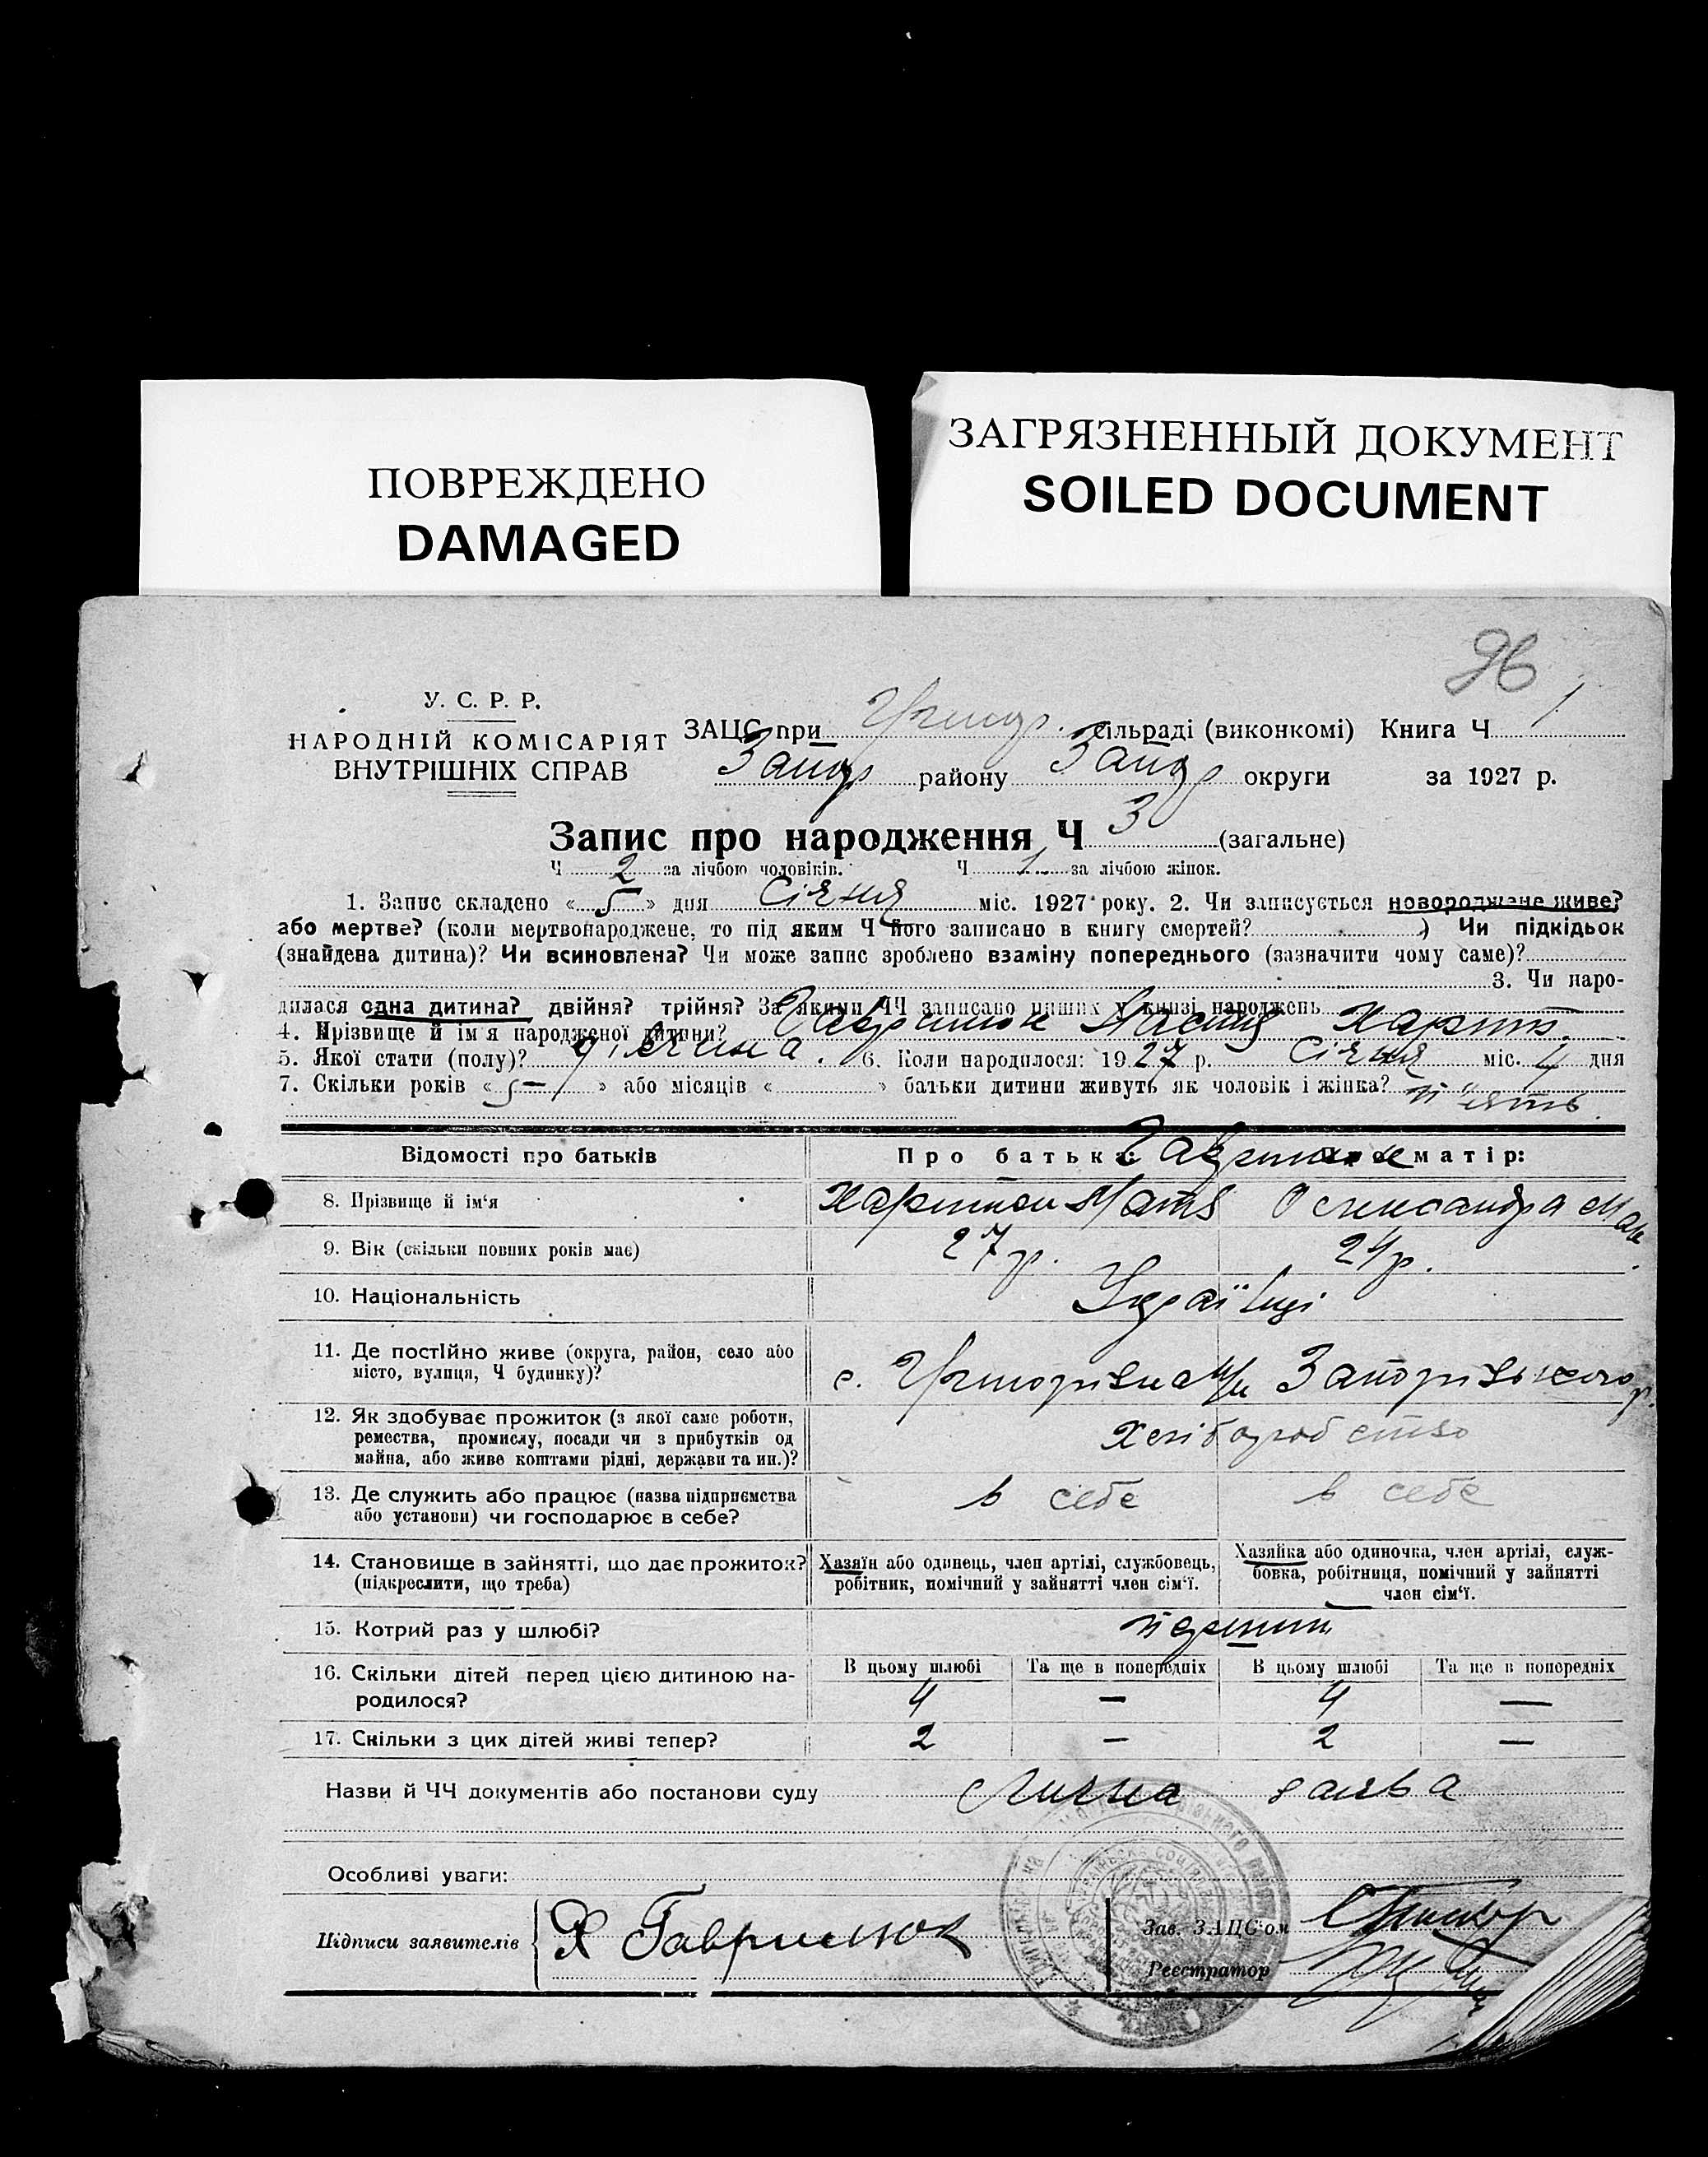 ПОВРЕЖДЕНО
DAMAGED
ЗАГРЯЗНЕННЫЙ ДОКУМЕНТ
SOILED DOCUMENT
96
У. С. Р. Р.
НАРОДНІЙ КОМІСАРІЯТ
ВНУТРІШНІХ СПРАВ
ЗАЦС при сільраді (виконкомі) Книга Ч 1
Запор району Запор округи за 1927 р.
Запис про народження Ч 3 (загальне)
Ч 2 за лічбою чоловіків. Ч 1 за лічбою жінок.
1. Запис складено « 5 » дня Січня міс. 1927 року. 2. Чи записується новороджене живе?
або мертве? (коли мертвонароджене, то під яким Ч його записано в книгу смертей? ) Чи підкідьок
(знайдена дитина)? Чи всиновлена? Чи може запис зроблено взаміну попереднього (зазначити чому саме)?
3. Чи наро-
дилася одна дитина? двійня? трійня? За якими ЧЧ записано инших у книзі народжень
4. Прізвище й ім'я народженої дитини? Гаврилюк Харит
5. Якої стати (полу)? дівчина. 6. Коли народилося: 1927 р. Січня міс. дня
7. Скільки років « 5 » або місяців « » батьки дитини живуть як чоловік і жінка? п"ять
Відомості про батьків
Про батька: Гаврилюк Про матір:
8. Прізвище й ім'я Харитон Матв Олександра Мак
9. Вік (скільки повних років має) 27 р. 24 р.
10. Національність Українці
11. Де постійно живе (округа, район, село або
місто, вулиця, Ч будинку)? с. Запорізького р.
12. Як здобуває прожиток (з якої саме роботи,
ремества, промислу, посади чи з прибутків од
майна, або живе коштами рідні, держави та ин.)? Хліборобство
13. Де служить або працює (назва підприємства
або установи) чи господарює в себе? в себе в себе
14. Становище в зайнятті, що дає прожиток?
(підкреслити, що треба)
Хазяїн або одинець, член артілі, службовець,
робітник, помічний у зайнятті член сім'ї.
Хазяйка або одиночка, член артілі, служ-
бовка, робітниця, помічний у зайнятті
член сім'ї.
15. Котрий раз у шлюбі?
16. Скільки дітей перед цією дитиною на-
родилося?
В цьому шлюбі Та ще в попередніх В цьому шлюбі Та ще в попередніх
4 — 4 —
17. Скільки з цих дітей живі тепер? 2 — 2 —
Назви й ЧЧ документів або постанови суду Лична заява
Особливі уваги:
Підписи заявителів Х Гаврилюк
Зав. ЗАЦС'ом
Реєстратор